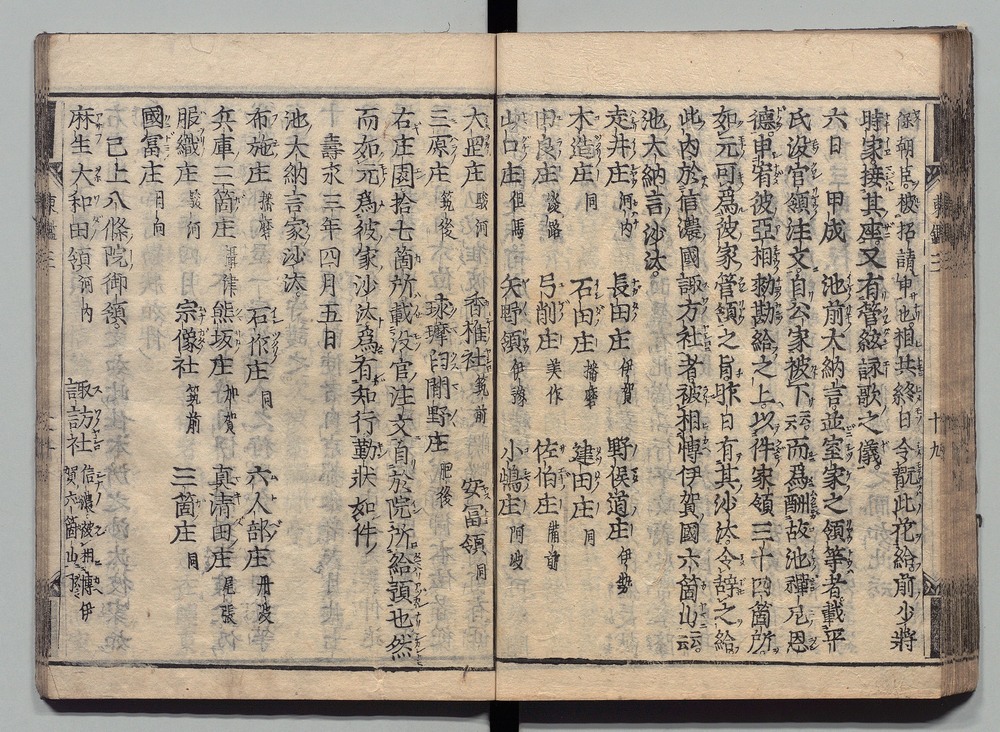 保朝臣被招請申也相共終日令翫此花給前少將
時家接其座又有管絃詠歌之儀
六日 甲戌 池前大納言並室家之領等者載平
氏没官領注文自公家被下云云而爲酬故池禪尼恩
德申宥彼亞相勅勘給之上以件家領三十四箇所
如元可爲彼家管領之旨昨日有其沙汰令辞之給
此内於信濃國諏方社者被相博伊賀國六箇山云云
池大納言沙汰
走井庄 河内 長田庄 伊賀 野俣道庄 伊勢
木造庄 同 石田庄 播磨 建田庄 同
由良庄 淡路 弓削庄 美作 佐伯庄 備前
山口庄 但馬 矢野領 伊豫 小嶋庄 阿波
大岡庄 駿河 香椎社 筑前 安冨領 同
三原庄 筑後 球摩臼間野庄 肥後
右庄園拾七箇所載没官注文自於院所給預也然
而如元爲彼家沙汰爲有知行勤狀如件
壽永三年四月五日
池大納言家沙汰
布施庄 播磨 石作庄 同 六人部庄 丹波
兵庫三箇庄 攝津 熊坂庄 加賀 真清田庄 尾張
服織庄 駿河 宗像社 筑前 三箇庄 同
國冨庄 日向
右已上八條院御領
麻生大和田領 河内 諏訪社 信濃被相博伊賀六箇山了
東鑑三 十九